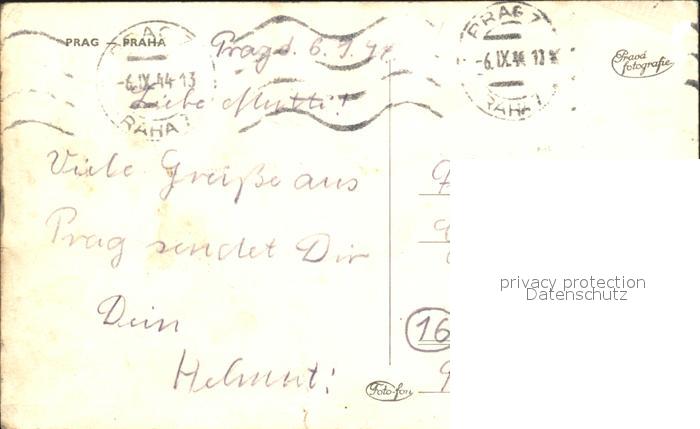 PRAG — PRAHA
PRAG 7
-6.IX.44 13
PRAHA 7
PRAG 7
-6.IX.44 13
PRAHA 7
Pravá
fotografie
Prag d. 6.9.44
Liebe Mutti!
Viele Grüße aus
Prag sendet Dir
Dein
Helmut!
16
Foto-fon
privacy protection
Datenschutz